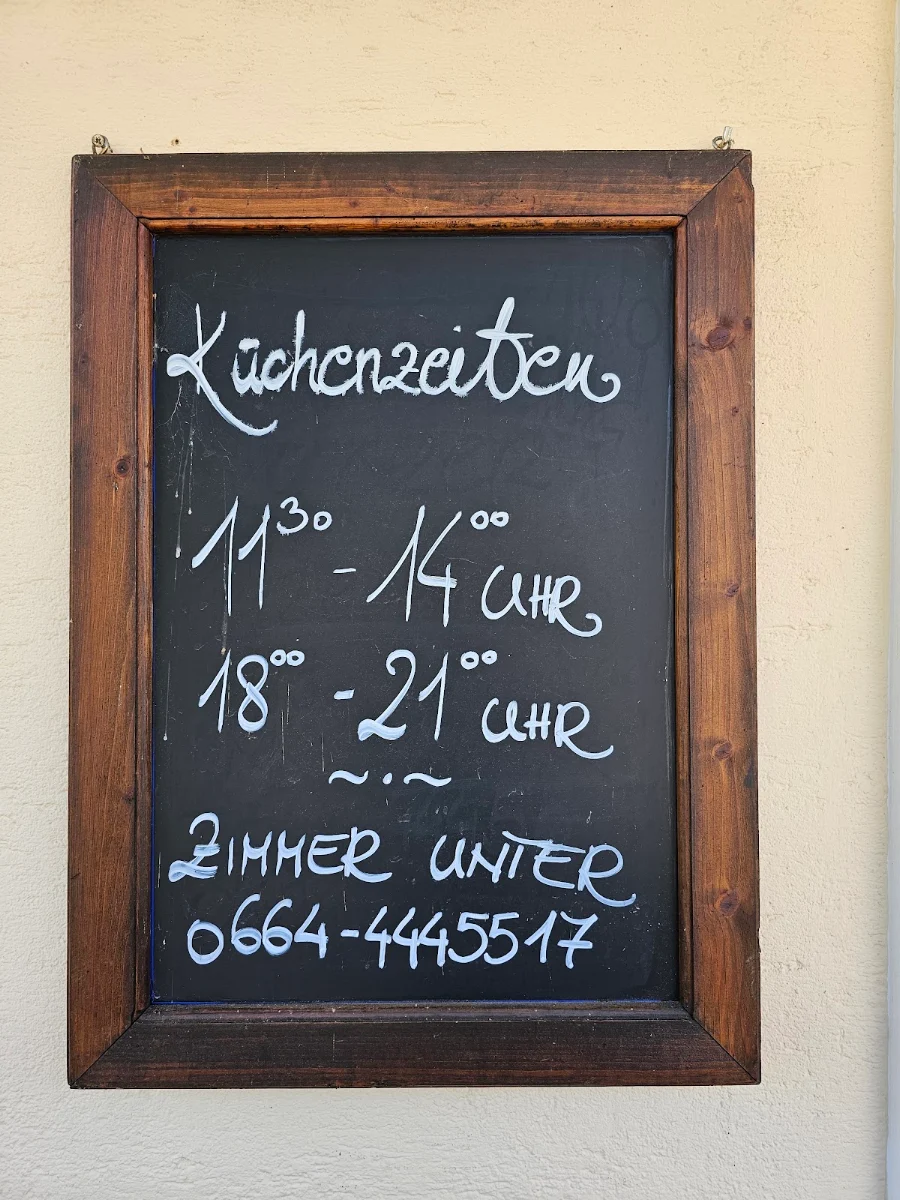 Küchenzeiten
11³⁰ - 14⁰⁰ UHR
18⁰⁰ - 21⁰⁰ UHR
~ . ~
ZIMMER UNTER
0664-4445517